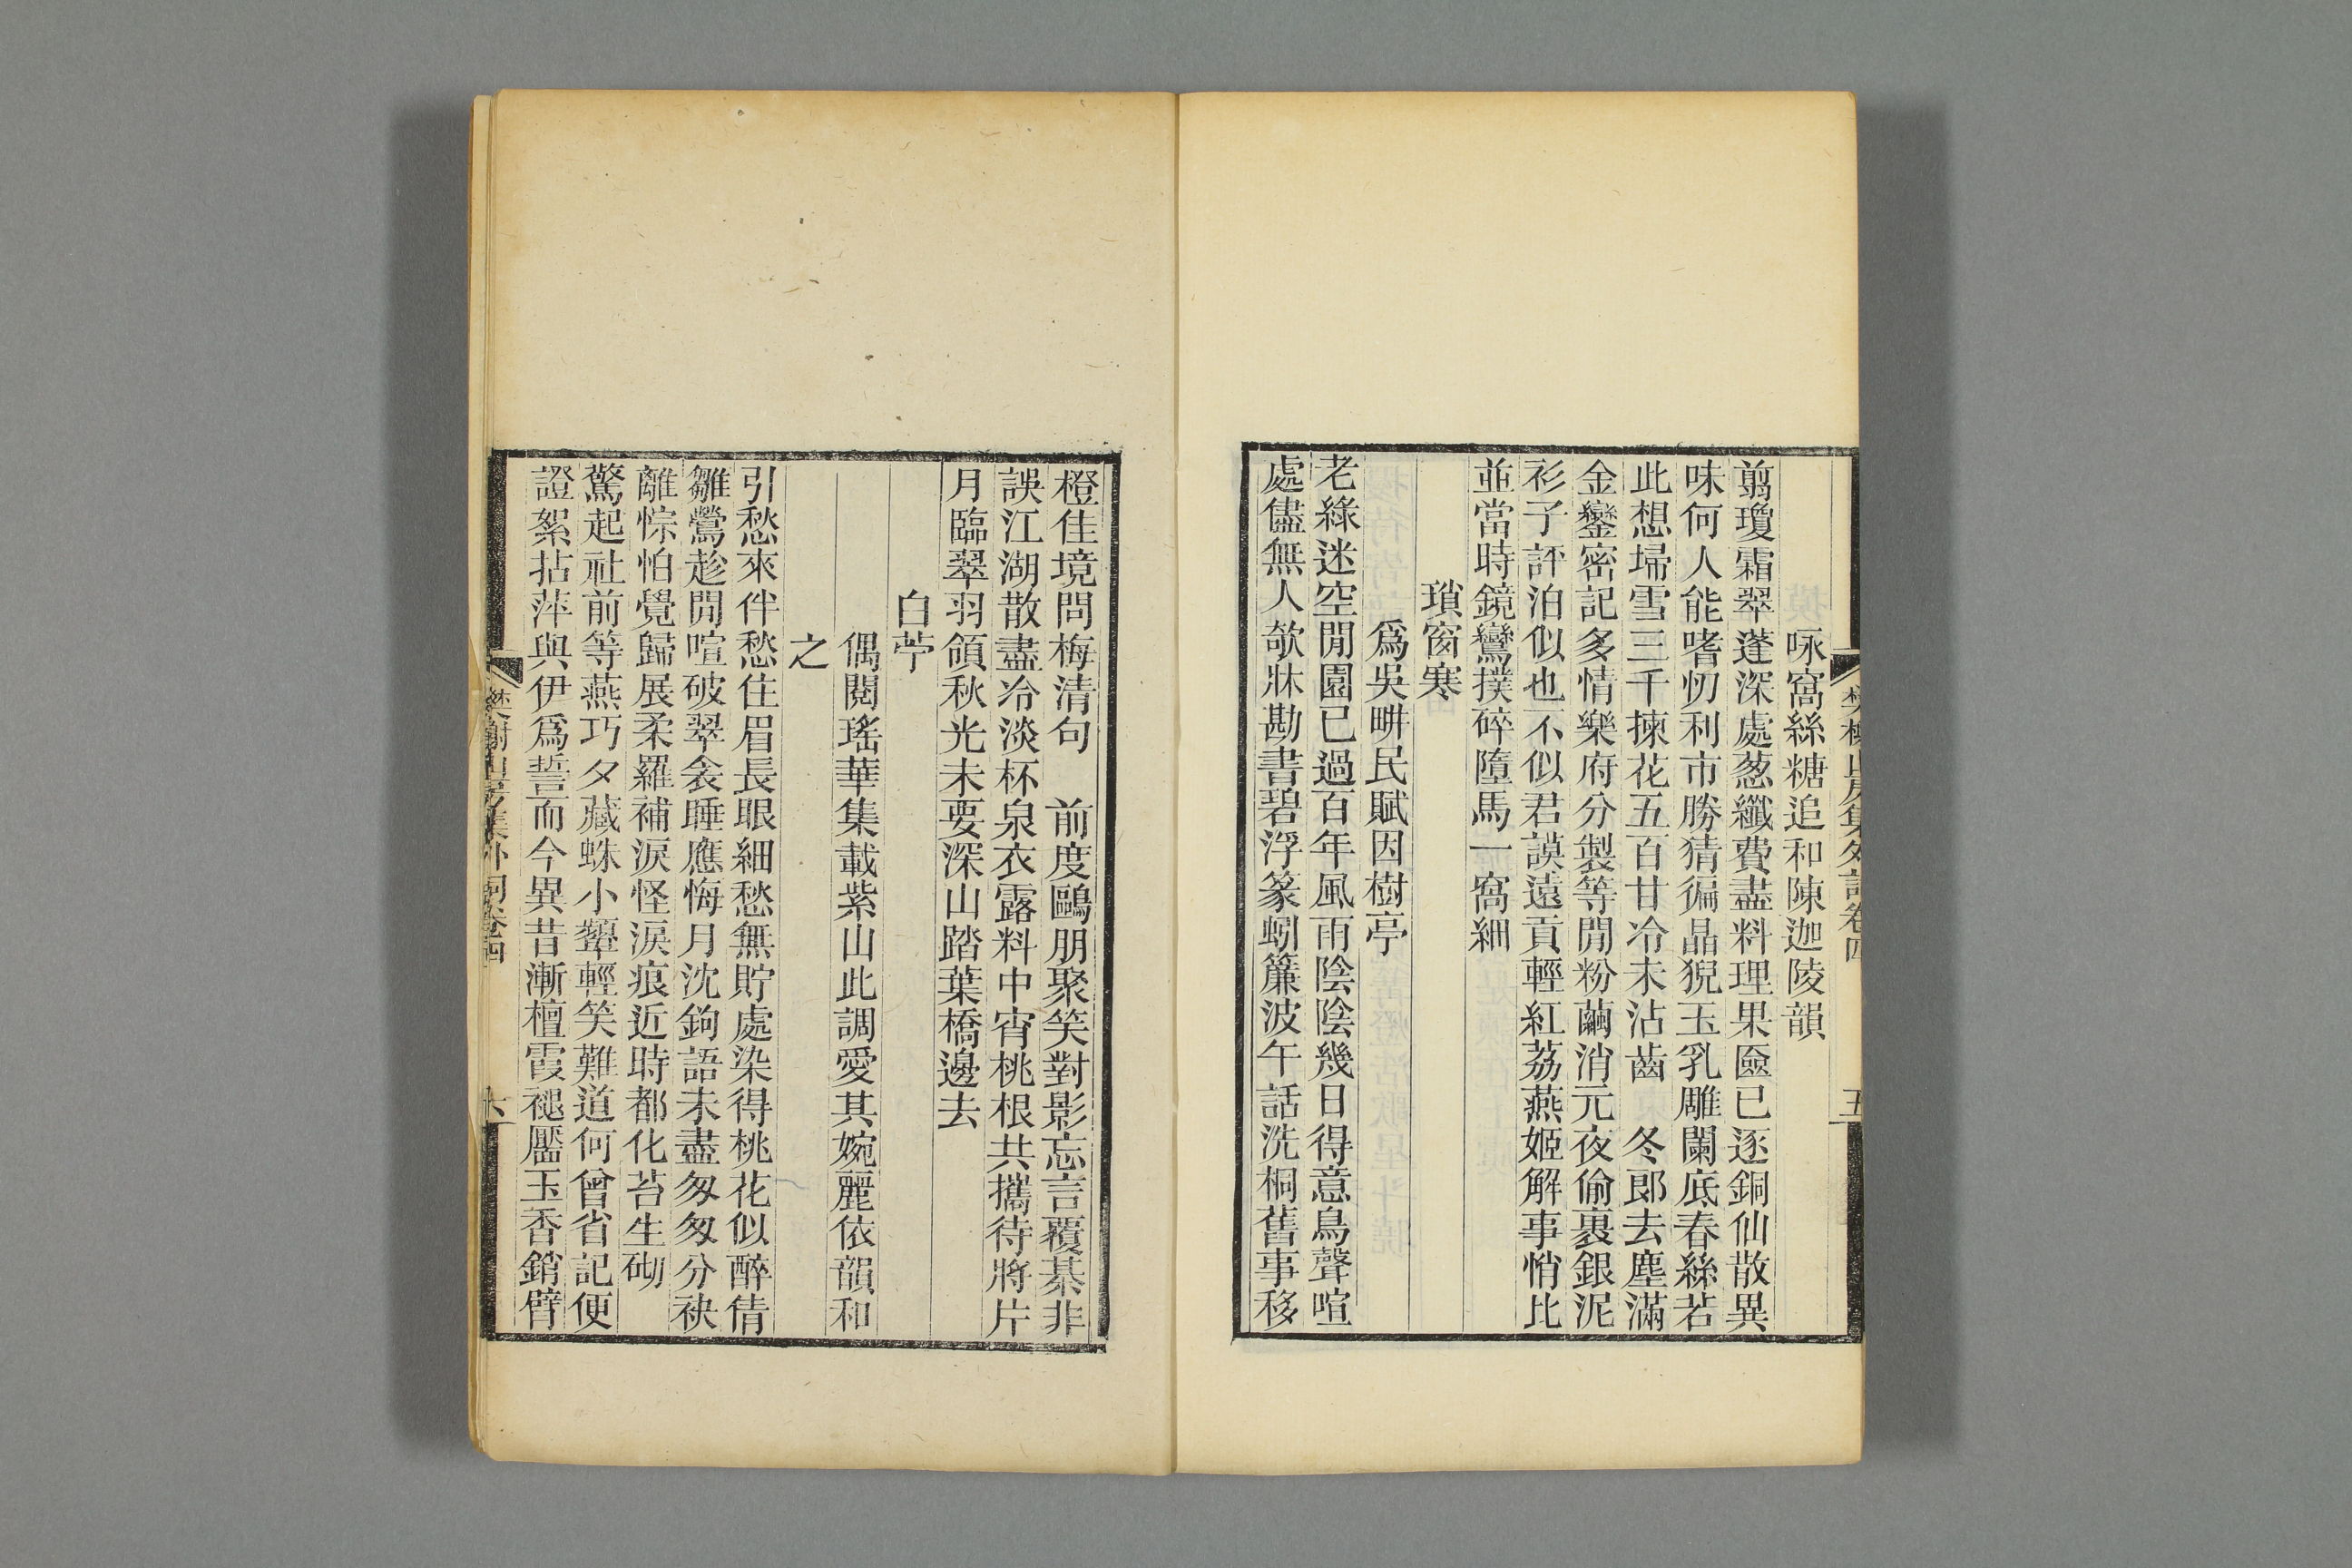 咏窩絲糖追和陳迦陵韻
翦瓊霜翠蓬深處葱纖費盡料理果匳已逐銅仙散異
味何人能嗜忉利市勝猜徧晶猊玉乳雕闌底春絲若
此想埽雪三千揀花五百甘冷未沾齒　冬郎去塵滿
金鑾密記多情樂府分製等閒粉繭消元夜偷裹銀泥
衫子評泊似也不似君謨遠貢輕紅荔燕姬解事悄比
並當時鏡鸞撲碎墮馬一窩細
瑣窗寒
爲吳畊民賦因樹亭
老綠迷空閒園已過百年風雨陰陰幾日得意鳥聲喧
處儘無人欹牀勘書碧浮篆蚓簾波午話洗桐舊事移
五
橙佳境問梅清句　前度鷗朋聚笑對影忘言覆棊非
誤江湖散盡冷淡杯泉衣露料中宵桃根共攜待將片
月臨翠羽領秋光未要深山踏葉橋邊去
白苧
偶閱瑤華集載紫山此調愛其婉麗依韻和
之
引愁來伴愁住眉長眼細愁無貯處染得桃花似醉倩
雛鶯趁閒喧破翠衾睡應悔月沈鉤語未盡匆匆分袂
離悰怕覺歸展柔羅補淚怪淚痕近時都化苔生砌
驚起社前等燕巧夕藏蛛小顰輕笑難道何曾省記便
證絮拈萍與伊爲誓而今異昔漸檀霞褪靨玉香銷臂
樊榭山房集外詞卷四
六